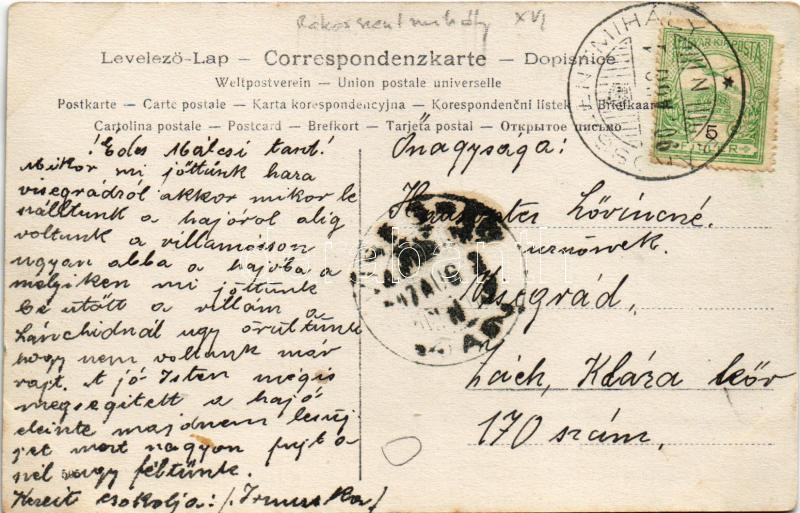 Rákosszentmihály XVI
Levelező-Lap – Correspondenzkarte – Dopisnice
Weltpostverein – Union postale universelle
Postkarte – Carte postale – Karta korespondencyjna – Korespondenční listek – Briefkaart
Cartolina postale – Postcard – Brefkort – Tarjeta postal – Открытое письмо
MAGYAR KIR. POSTA
5
Édes Málcsi tant!
Mikor mi jöttünk haza
visegrádról akkor mikor le
szálltunk a hajóról alig
voltunk a villamosson
ugyan abba a hajóba a
melyiken mi jöttünk
be ütött a villám a
Lánchidnál ugy örültünk
hogy nem voltunk már
rajt. A jó Isten mégis
megsegitett a hajó
eleinte majdnem leszúj
jet mert nagyon fujt a
szél ugy féltünk.
Kezeit csokolja: /:Irmuska/
Őnagysaga:
Lővincné
urnőnek.
Visegrád,
Zách, Klára kör
170 szám,